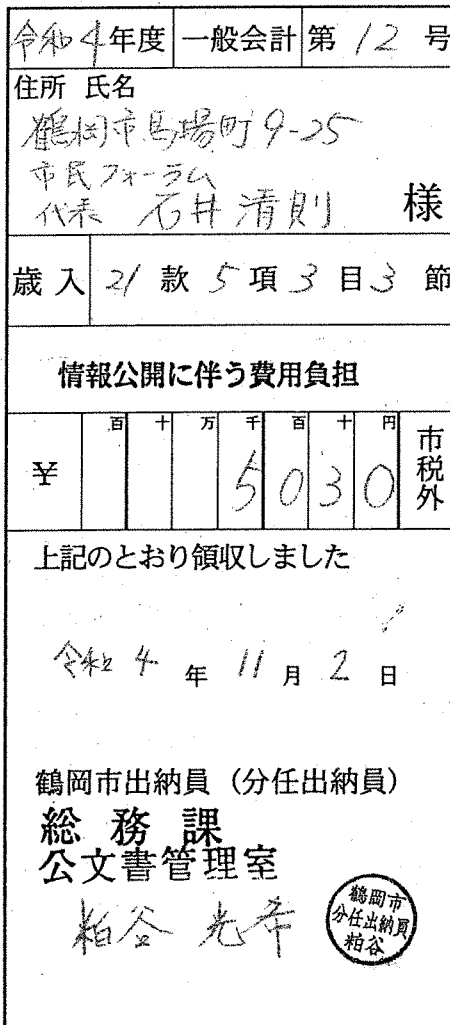 令和4年度 一般会計 第 12 号
住所 氏名
鶴岡市馬場町9-25
市民フォーラム
代表 石井清則 様
歳入 21 款 5 項 3 目 3 節
情報公開に伴う費用負担
百 十 万 千 百 十 円
¥ 5 0 3 0 市税外
上記のとおり領収しました
令和 4 年 11 月 2 日
鶴岡市出納員（分任出納員）
総務課
公文書管理室
粕谷 光希
鶴岡市
分任出納員
粕谷